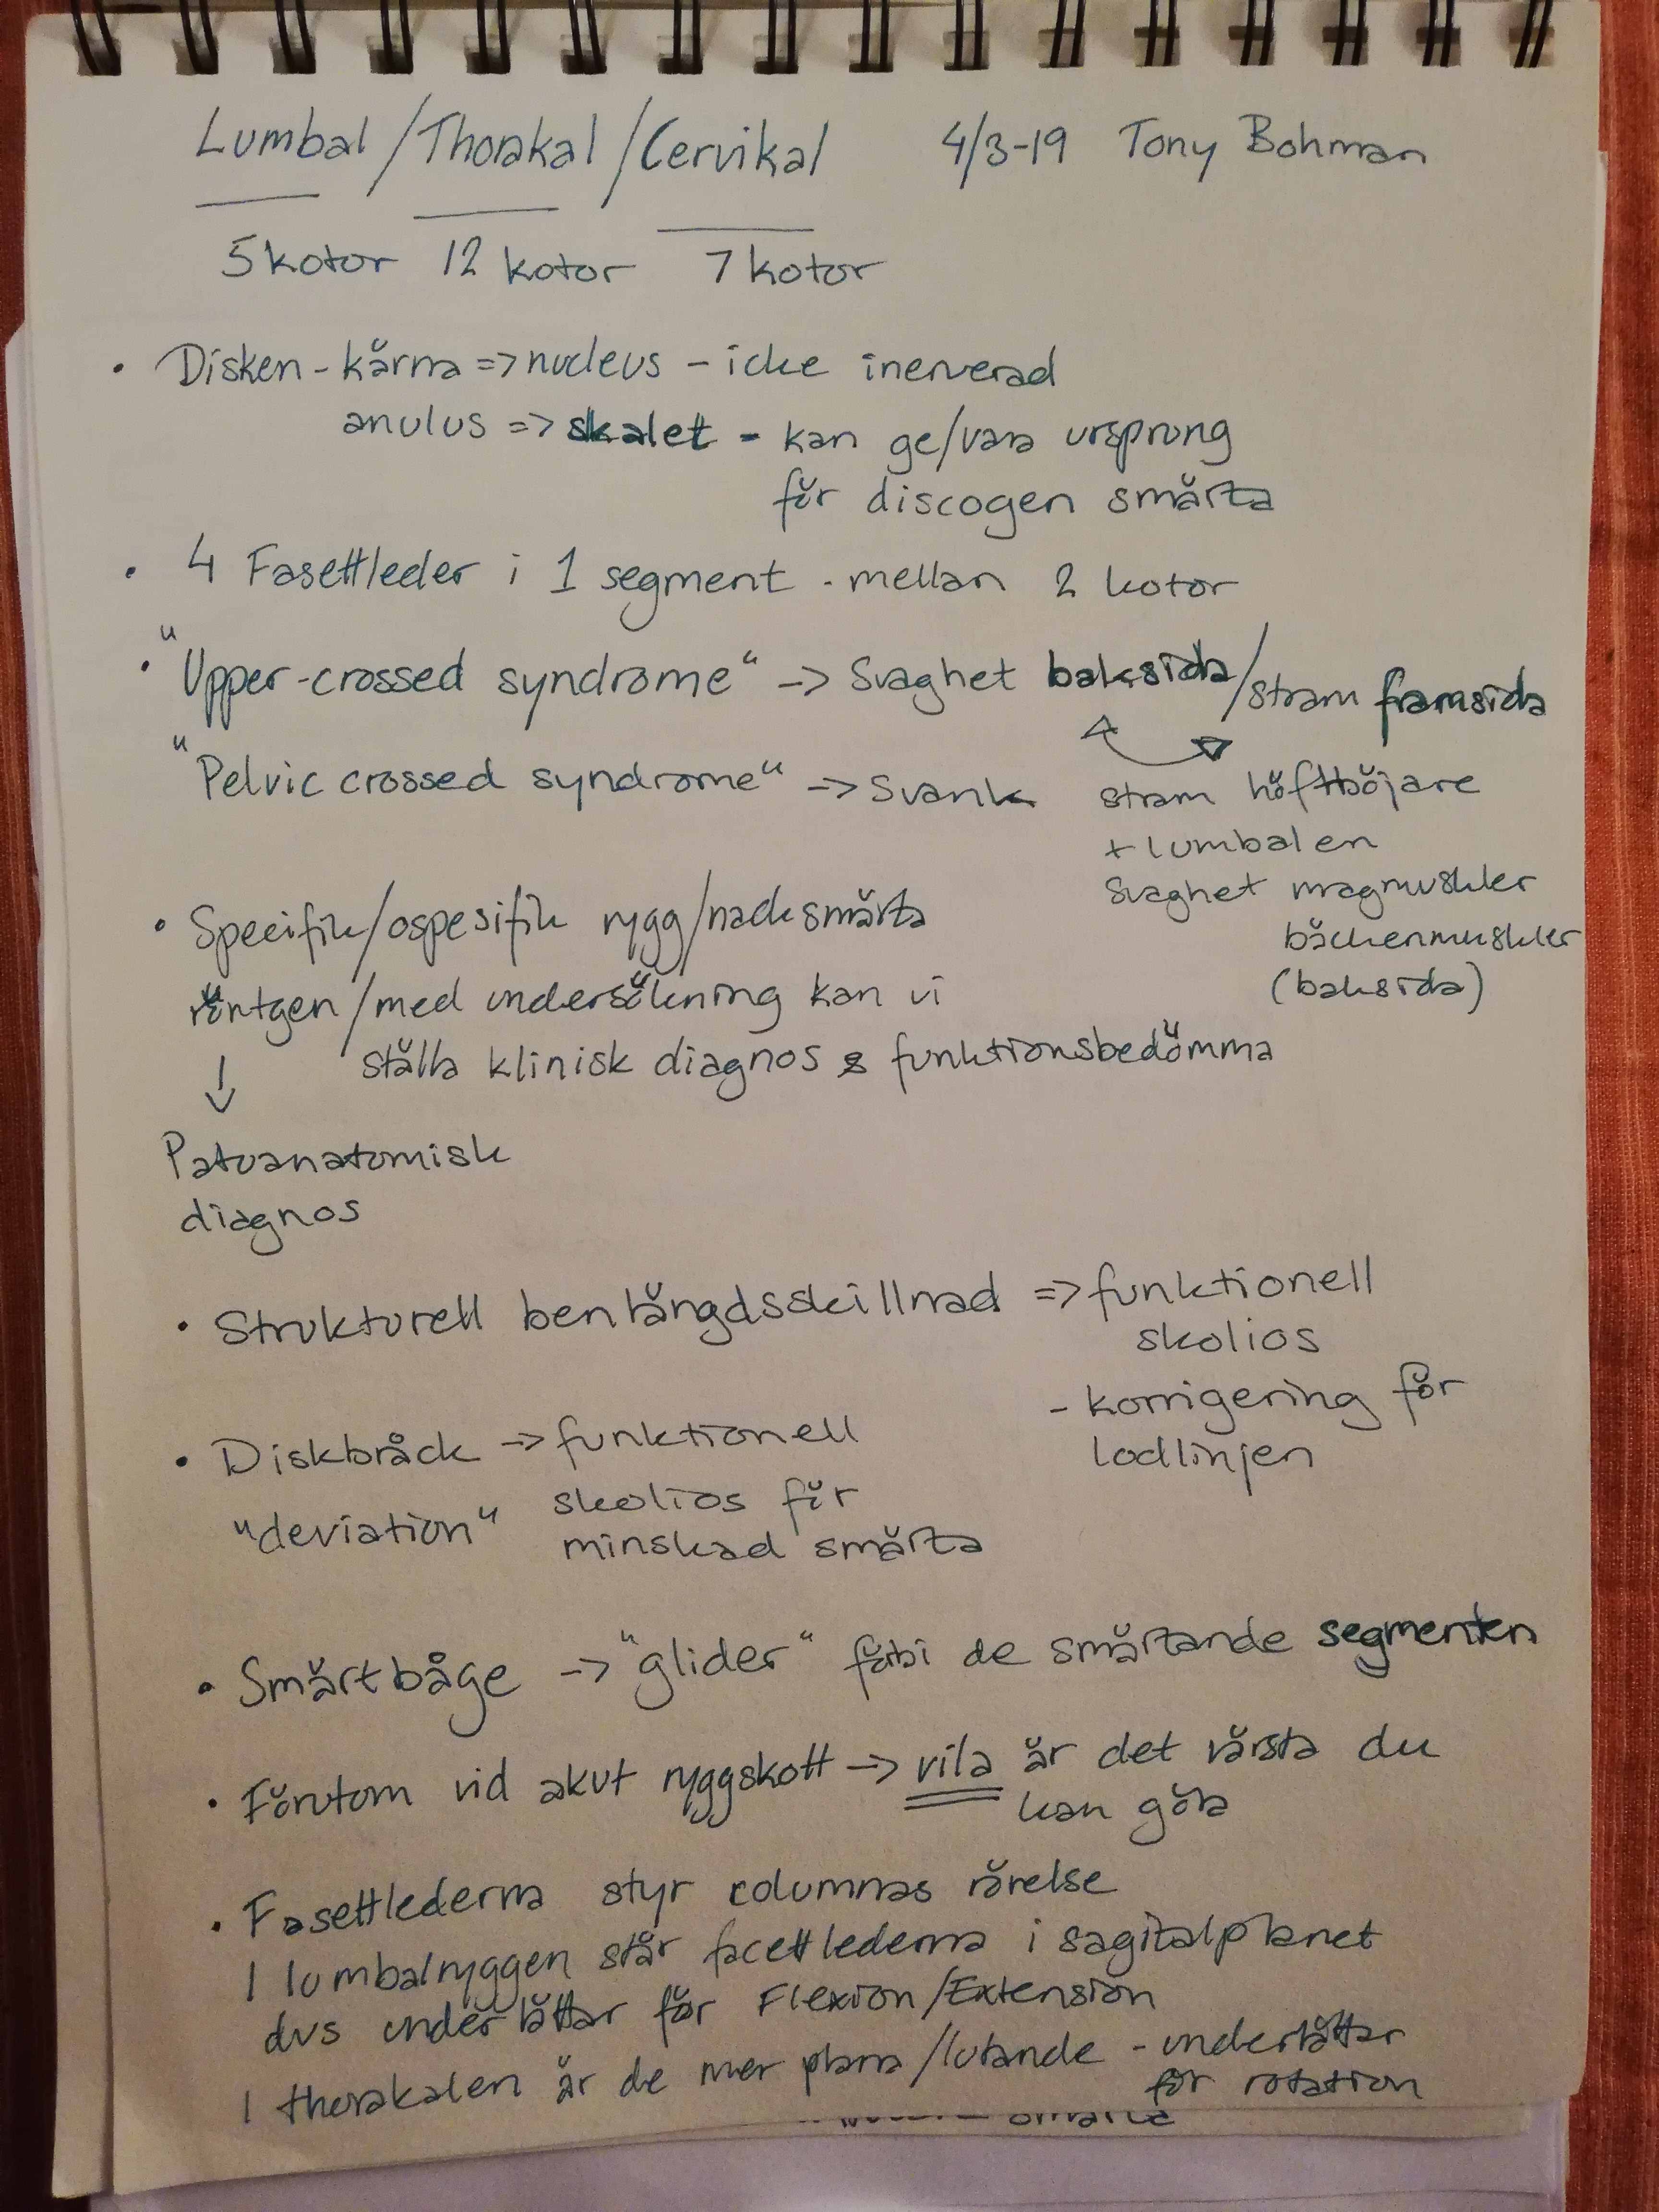 Lumbal / Thorakal / Cervikal 4/3-19 Tony Bohman
5 kotor 12 kotor 7 kotor
• Disken - kärna => nucleus - icke inerverad
anulus => skalet - kan ge/vara ursprung
för discogen smärta
• 4 Fasettleder i 1 segment - mellan 2 kotor
• "Upper-crossed syndrome" -> Svaghet baksida / stram framsida
"Pelvic crossed syndrome" -> Svank stram höftböjare
+ lumbalen
svaghet magmuskler
bäckenmuskler
(baksida)
• Specifik/ospesifik rygg/nacksmärta
röntgen / med undersökning kan vi
ställa klinisk diagnos & funktionsbedömma
↓
Patoanatomisk
diagnos
• Strukturell benlängdsskillnad => funktionell
skolios
- korrigering för
lodlinjen
• Diskbråck -> funktionell
"deviation" skolios för
minskad smärta
• Smärtbåge -> "glider" förbi de smärtande segmenten
• Förutom vid akut ryggskott -> vila är det värsta du
kan göra
• Fasettlederna styr columnas rörelse
I lumbalryggen står facettlederna i sagitalplanet
dvs underlättar för Flexion/Extension
I thorakalen är de mer plana/lutande - underlättar
för rotation
smärta